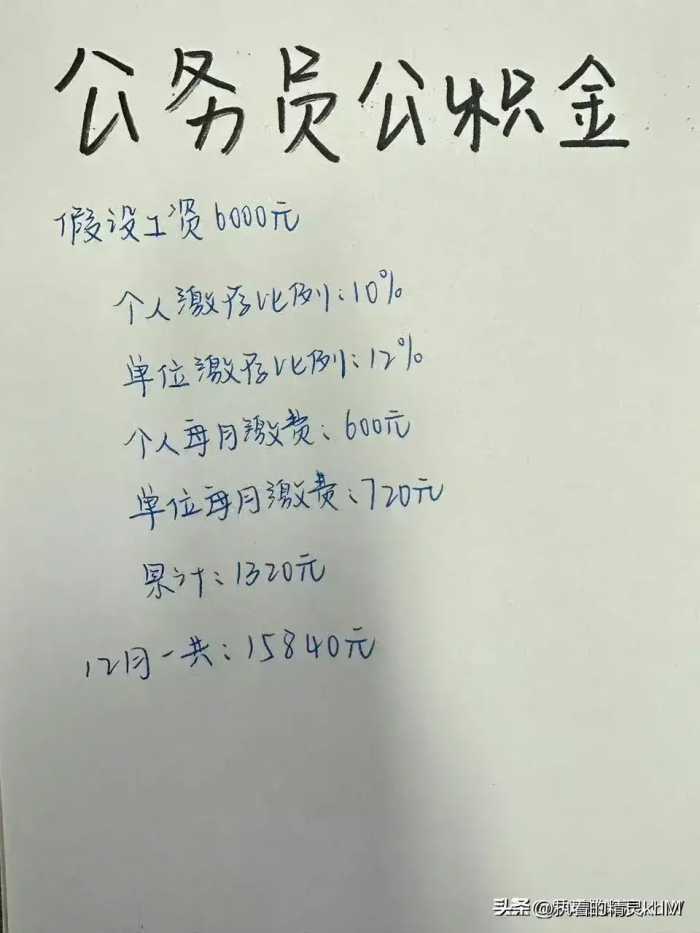 公务员公积金
假设工资6000元
个人缴存比例:10%
单位缴存比例:12%
个人每月缴费:600元
单位每月缴费:720元
累计:1320元
12月一共:15840元
头条 @执着的精灵kdM